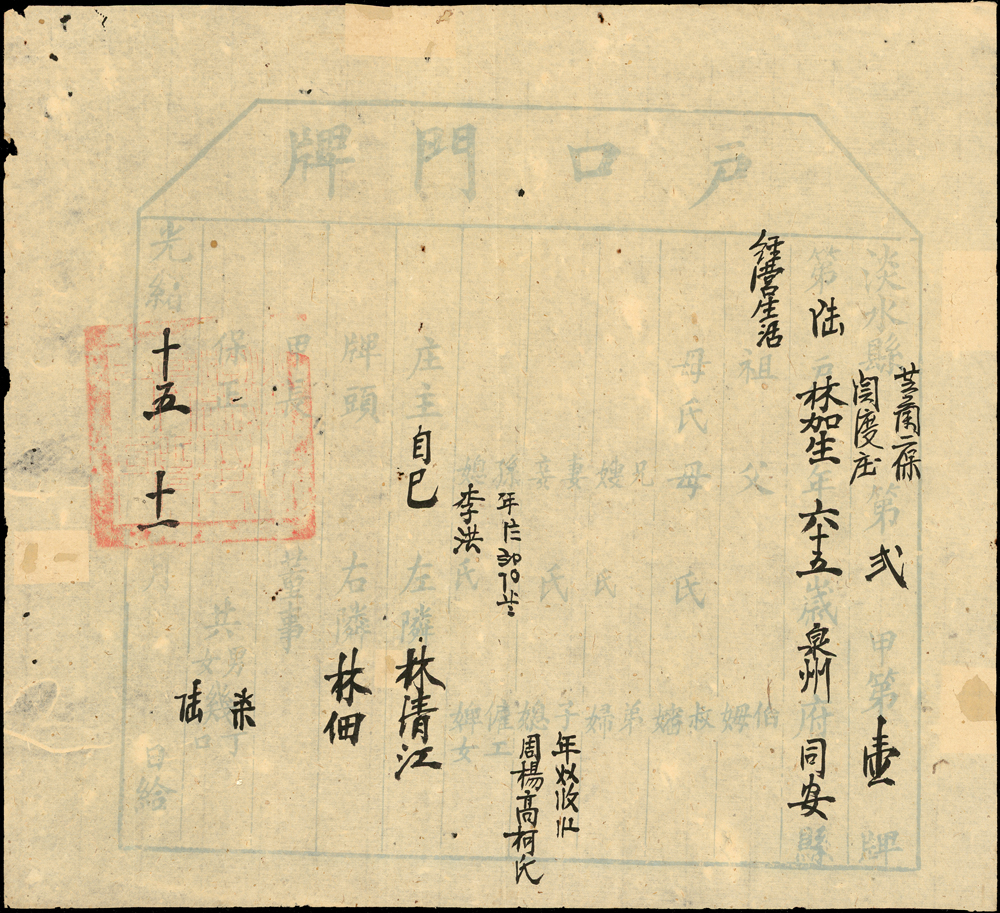 戶口門牌
淡水縣芝蘭二保関渡庄第弍甲第壹牌
第陆戶林加生年六十五歲泉州府同安縣
経营生活
祖 父 伯 姆
母氏 母氏 叔 嬸
兄 嫂氏 弟 婦
妻 妾氏 子 媳
周楊高柯氏
孫 媳氏 僱工 婢女
李洪
庄主自己 左隣林清江
牌頭 右隣林佃
甲長 董事
保正 共男幾丁 女幾口
柒
陆
光緒十五年十一月 日給